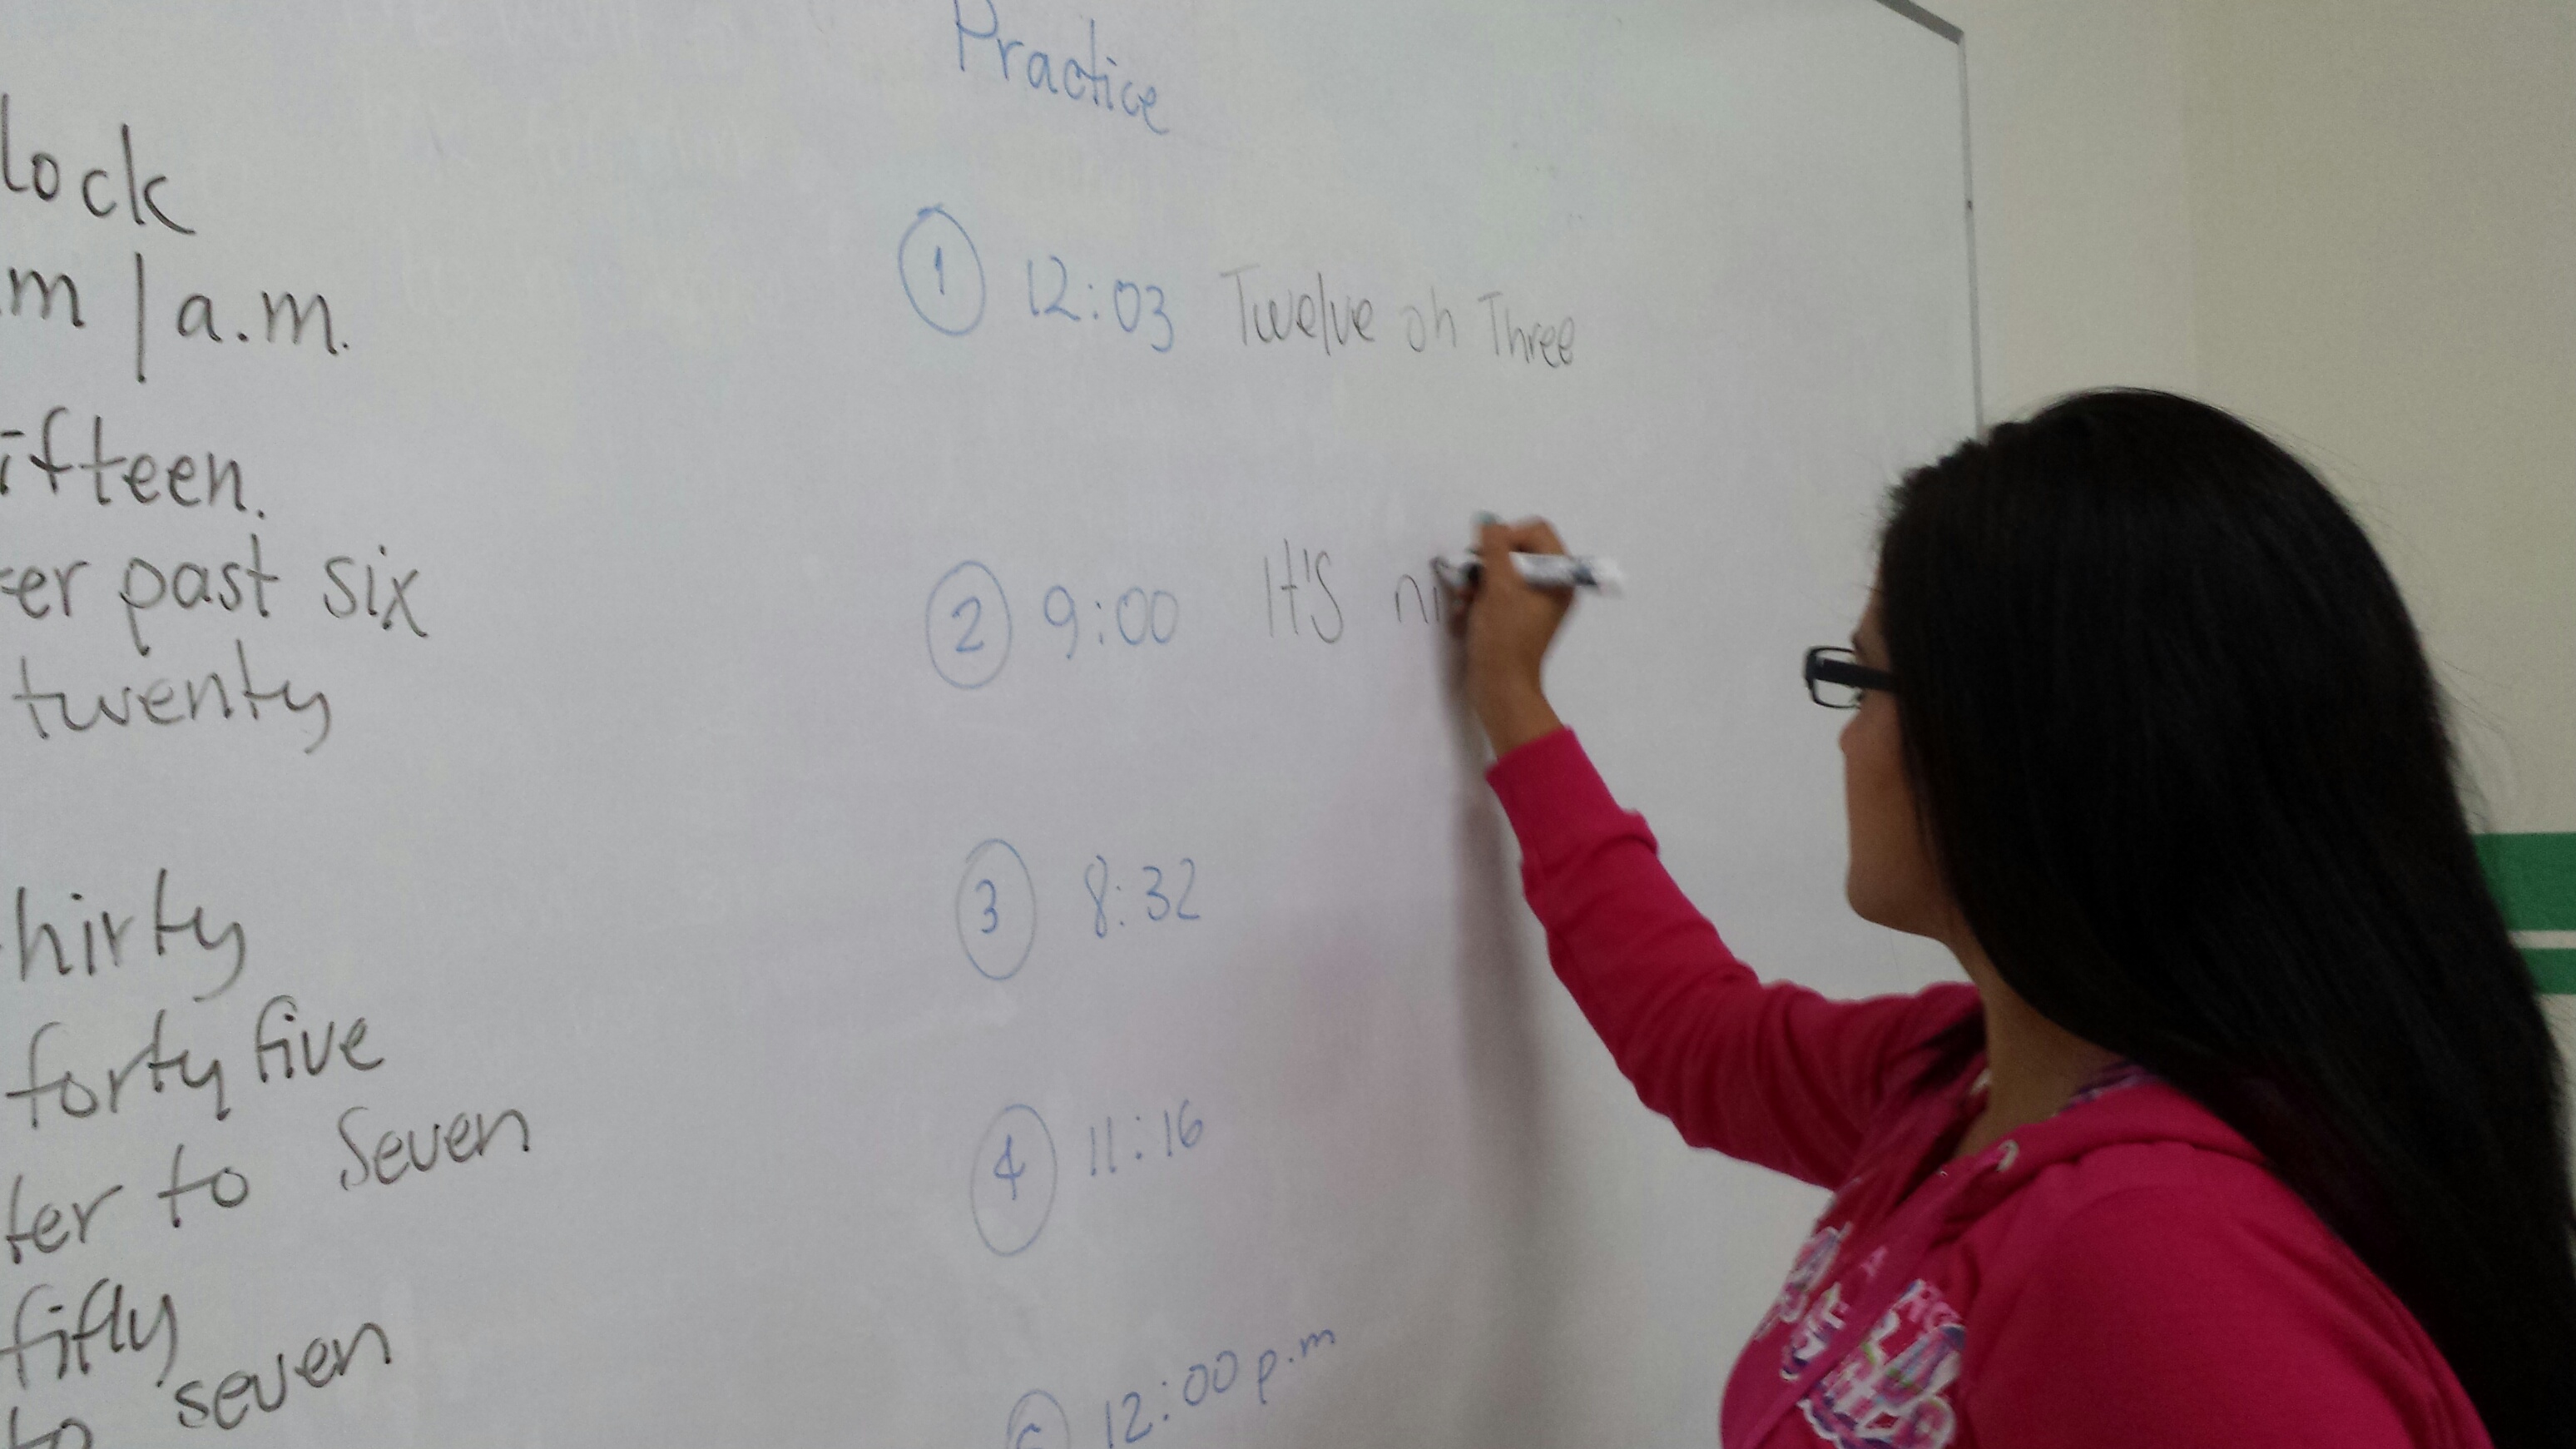 lock
m | a.m.
ifteen.
er past six
twenty
hirty
forty five
ter to Seven
fifty
to seven
Practice
1 12:03 Twelve oh Three
2 9:00 It's ni
3 8:32
4 11:16
12:00 p.m